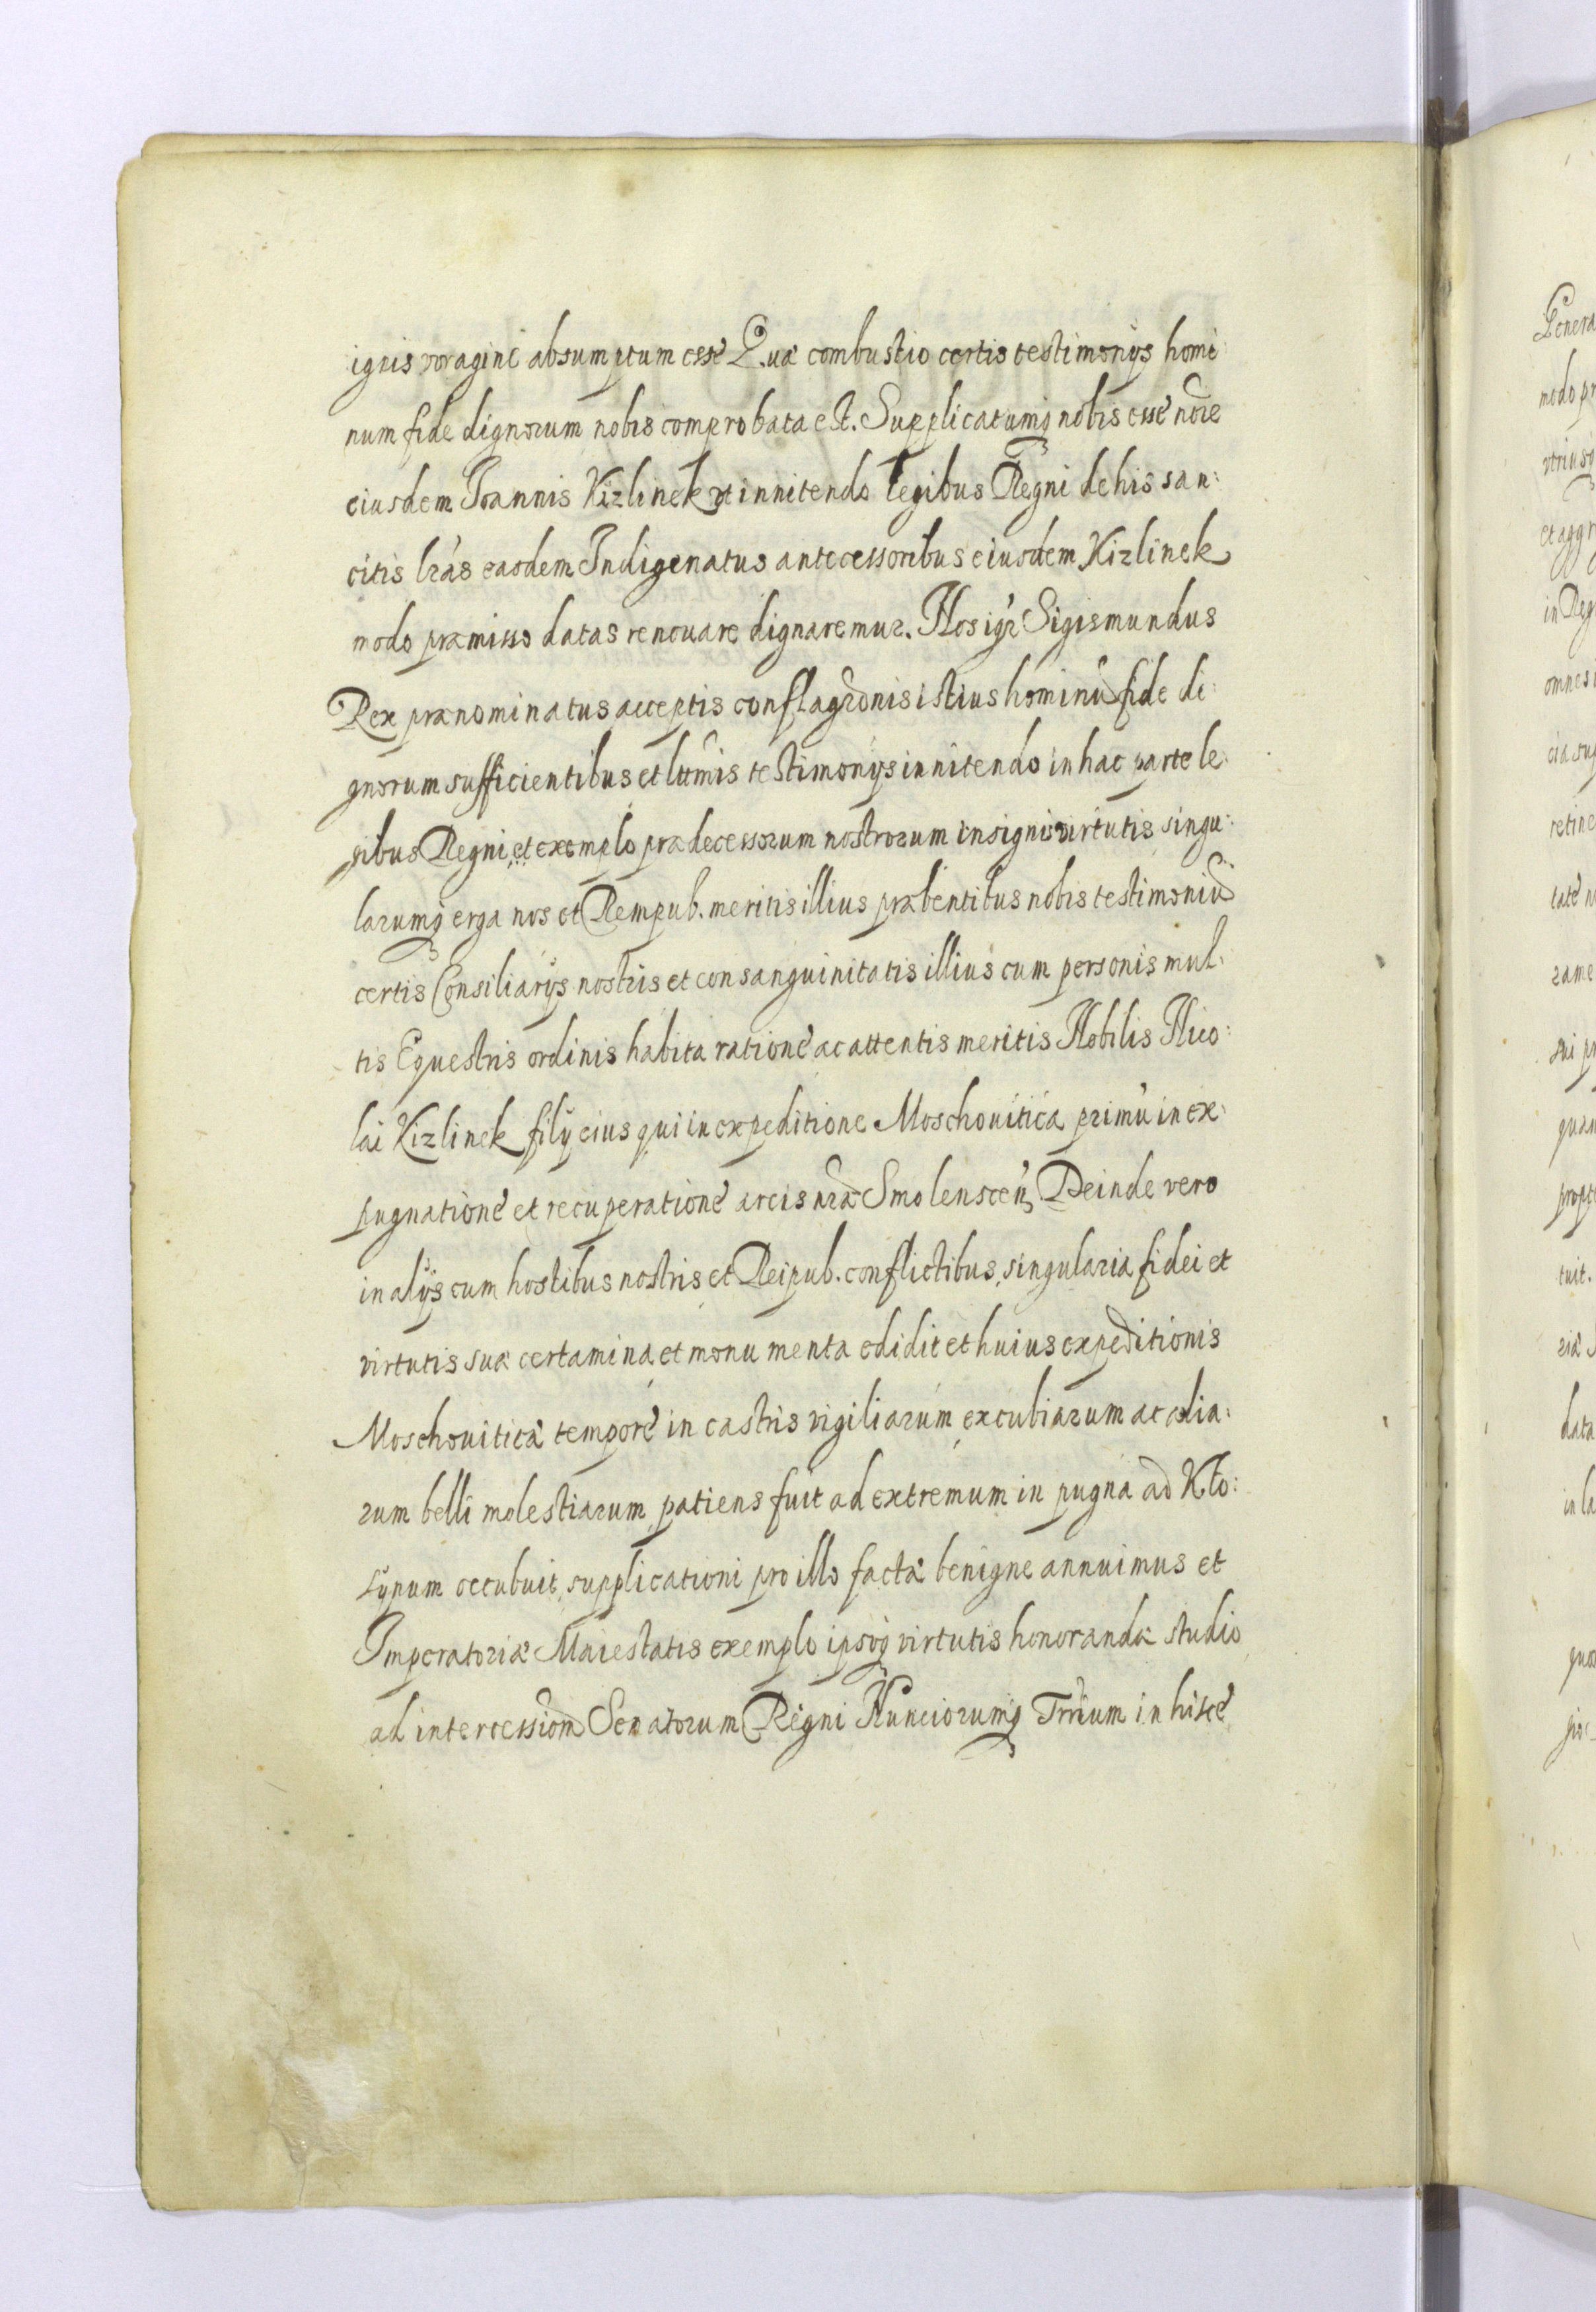 ignis voragine absumptum esse Quæ combustio certis testimonijs homi:
num fide dignorum nobis comprobata est. Supplicatumq nobis esse nõie
eiusdem Joannis Kizlinek vt innitendo legibus Regni de his san:
citis lrãs easdem Indigenatus antecessoribus eiusdem Kizlinek
modo præmisso datas renouare dignaremur. Nos igr̃ Sigismundus
Rex prænominatus acceptis conflagrõnis istius hominũ fide di:
gnorum sufficientibus et lttmis testimonijs innitendo in hac parte le:
gibus Regni, et exemplo prædecessorum nostrorum insignis virtutis singu:
larumq erga nos et Rempub. meritis illius præbentibus nobis testimoniũ
certis Consiliarijs nostris et consanguinitatis illius cum personis mul:
tis Equestris ordinis habita ratione ac attentis meritis Nobilis Nico:
lai Kizlinek filij eius qui in expeditione Moschouitica primũ in ex:
pugnatione et recuperatione arcis nrã Smolenscen̄ Deinde vero
in alijs cum hostibus nostris et Reipub. conflictibus, singularia fidei et
virtutis suæ certamina, et monumenta edidit et huius expeditionis
Moschouiticæ tempore in castris vigiliarum, excubiarum ac alia:
rum belli molestiarum patiens fuit ad extremum in pugna ad Klo:
sypum occubuit, supplicationi pro illo factæ benigne annuimus et
Imperatoriæ Maiestatis exemplo ipsoq virtutis honorandæ studio
ad intercessioñ Senatorum Regni Nunciorumq Trrium in hisce